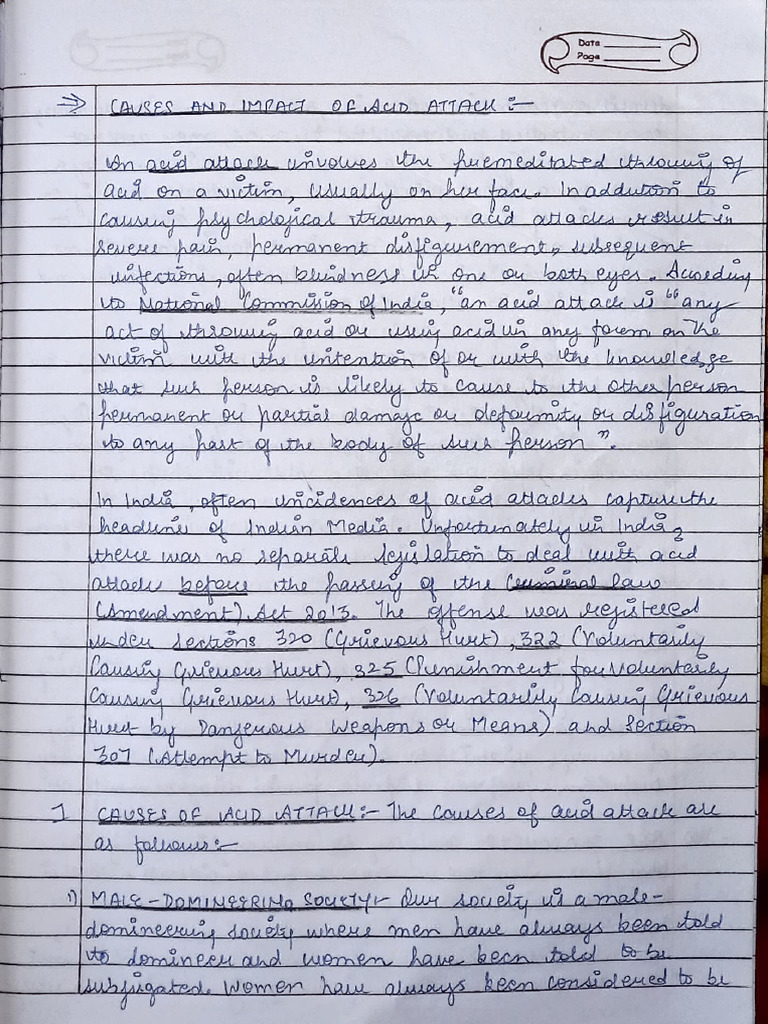 Date
Page
⇒ CAUSES AND IMPACT OF ACID ATTACK :-
An acid attack involves the premeditated throwing of
acid on a victim, usually on her face. In addution to
causing psychological trauma, acid attacks result in
severe pain, permanent disfigurement, subsequent
infections, often blindness in one or both eyes. According
to National Commision of India, "an acid attack is "any
act of throwing acid or using acid in any form on the
victim with the intention of or with the knowledge
that such person is likely to cause to the other person
permanent or partial damage or deformity or disfiguration
to any part of the body of such person".
In India, often incidences of acid attacks capture the
headline of Indian Media. Unfortunately in India,
there was no separate legislation to deal with acid
attacks before the passing of the Criminal Law
(Amendment) Act 2013. The offense was registered
under Sections 320 (Grievous Hurt), 322 (Voluntarily
Causing Grievous Hurt), 325 (Punishment for Voluntarily
Causing Grievous Hurt), 326 (Voluntarily Causing Grievous
Hurt by Dangerous Weapons or Means) and Section
307 (Attempt to Murder).
I CAUSES OF ACID ATTACK:- The causes of acid attack are
as follows:-
1) MALE-DOMINEERING SOCIETY:- Our society is a male-
domineering society where men have always been told
to domineer and women have been told to be
subjugated. Women have always been considered to be